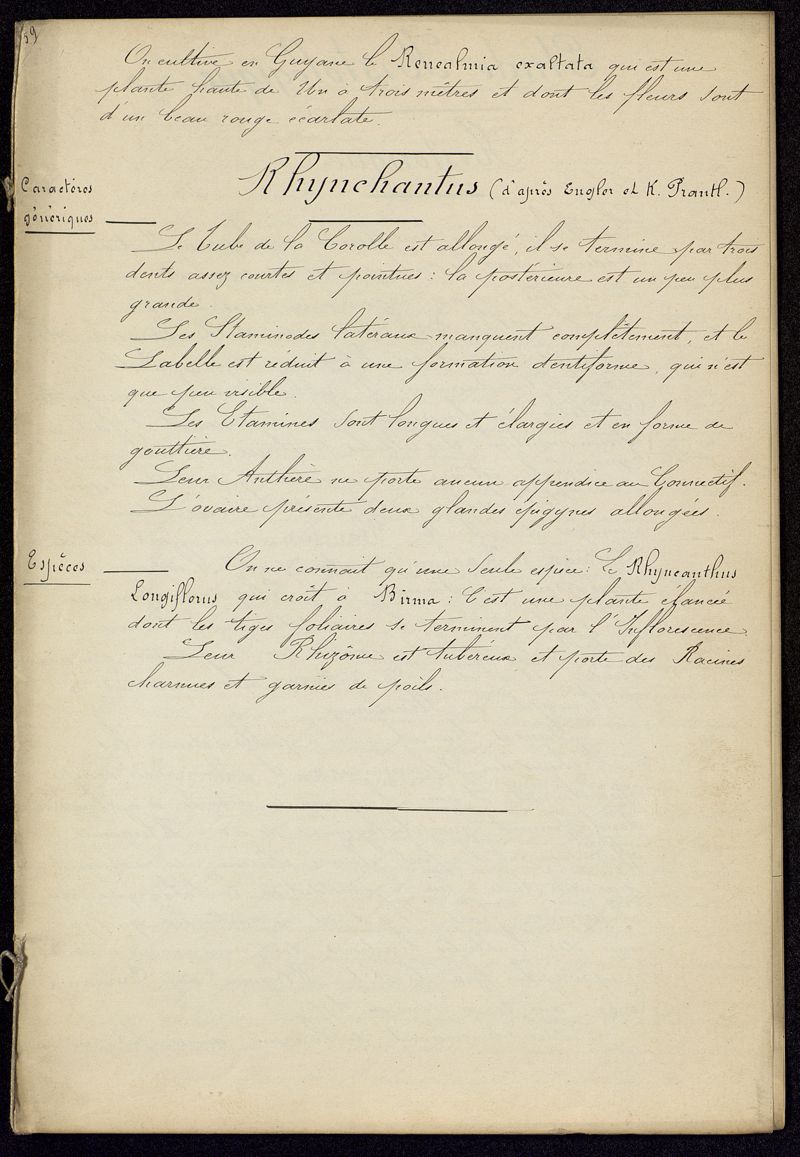 59
On cultive en Guyane le Renealmia exaltata qui est une
plante haute de Un à trois mètres et dont les fleurs sont
d'un beau rouge écarlate.
Rhynchantus (d'après Engler et K. Prantl.)
Caractères
génériques
Le Tube de la Corolle est allongé, il se termine par trois
dents assez courtes et pointues : la postérieure est un peu plus
grande.
Les Staminodes latéraux manquent complètement, et le
Labelle est réduit à une formation dentiforme, qui n'est
que peu visible.
Les Etamines sont longues et élargies et en forme de
gouttière.
Leur Anthère ne porte aucun appendice au Connectif.
L'ovaire présente deux glandes épigynes allongées.
Espèces
On ne connait qu'une seule espèce : Le Rhyncanthus
Longiflorus qui croît à Birma : C'est une plante élancée
dont les tiges foliaires se terminent par l'Inflorescence
Leur Rhizôme est tubéreux et porte des Racines
charnues et garnies de poils.